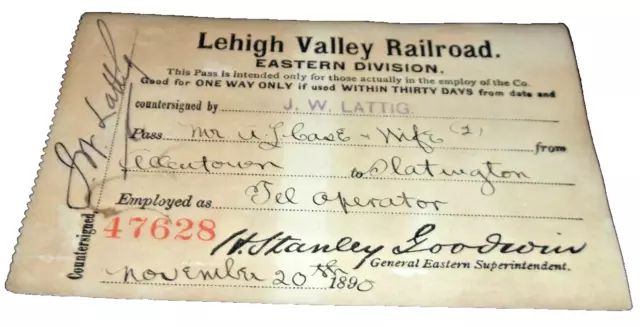 Lehigh Valley Railroad.
EASTERN DIVISION.
This Pass is intended only for those actually in the employ of the Co.
Good for ONE WAY ONLY if used WITHIN THIRTY DAYS from date and
countersigned by J. W. LATTIG.
Pass Mr Case & Wife (2) from
Allentown to Slatington
Employed as Tel Operator
47628
H. Stanley Goodwin
General Eastern Superintendent.
November 20th 1890
Countersigned J. W. Lattig